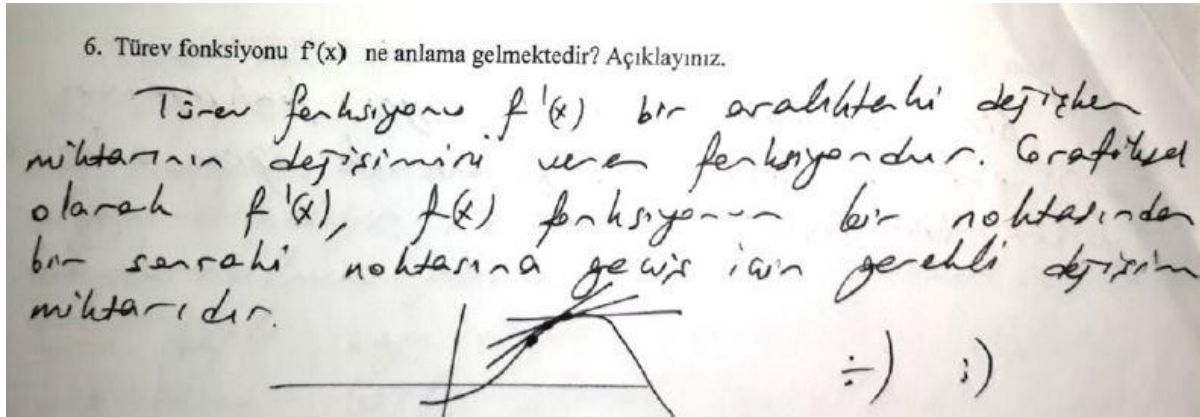 6. Türev fonksiyonu f'(x) ne anlama gelmektedir? Açıklayınız.
Türev fonksiyonu f'(x) bir aralıktaki değişken
miktarının değişimini veren fonksiyondur. Grafiksel
olarak f'(x), f(x) fonksiyonun bir noktasından
bir sonraki noktasına geçiş için gerekli değişim
miktarıdır.
÷) ;)